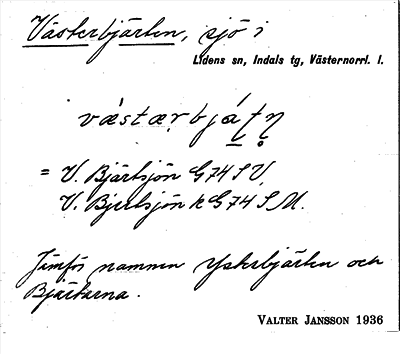 Västerbjärten, sjö i
Lidens sn, Indals tg, Västernorrl. l.
= V. Bjärtsjön G74 SV,
V. Bjertsjön k G74 S M.
Jämför namnen Ysterbjärten och
Bjärtarna.
VALTER JANSSON 1936